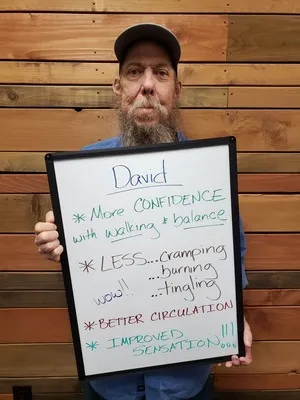 David
* More CONFIDENCE
with walking & balance
* LESS...cramping
...burning
wow!! ...tingling
* BETTER CIRCULATION
* IMPROVED
SENSATION!!!